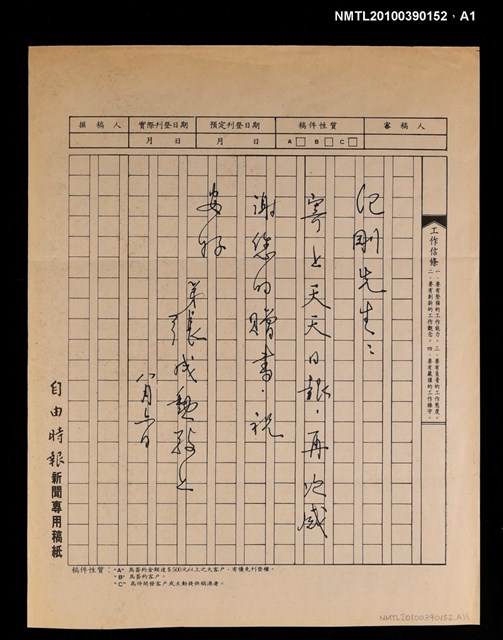 NMTL20100390152，A1
撰稿人 實際刊登日期 預定刊登日期 稿件性質 審稿人
月 日 月 日 A□ B□ C□
工作信條
一、要有堅強的工作能力。三、要有負責的工作態度。
二、要有創新的工作觀念。四、要有嚴謹的工作操守。
記剛先生：
寄上天天日報，再次感
謝您的贈書。祝
安好
弟 張成勳敬上
八月六日
自由時報新聞專用稿紙
稿件性質："A" 為簽約金額達$500元以上之大客戶，有優先刊登權。
"B" 為簽約客戶。
"C" 為待開發客戶或主動提供稿源者。
NMTL20100390152_A1/1